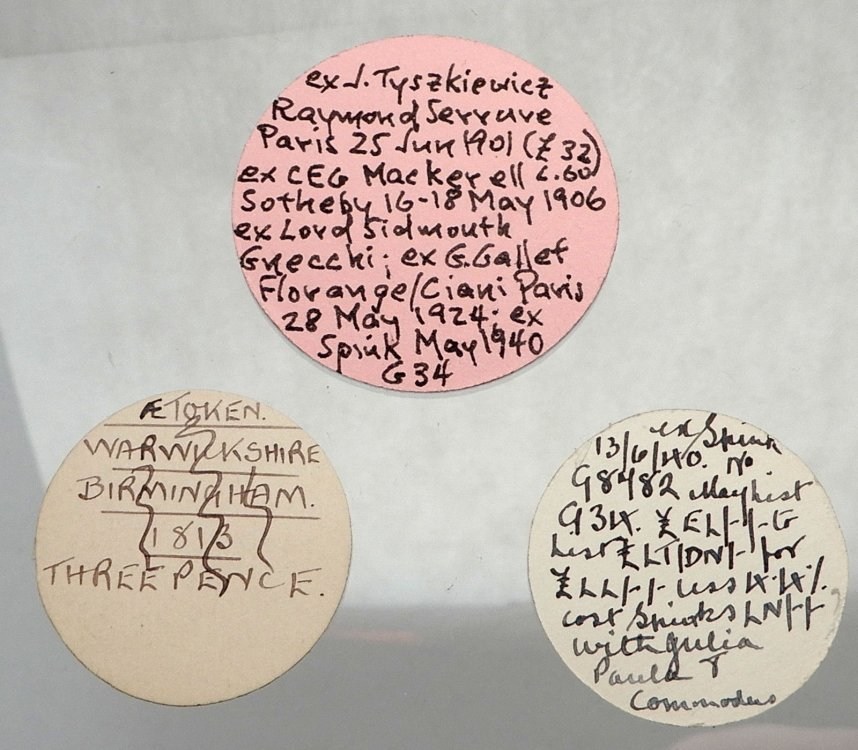 ex J. Tyszkiewicz
Raymond Serrure
Paris 25 Jun 1901 (£32)
ex CEG Mackerell £.60
Sotheby 16-18 May 1906
ex Lord Sidmouth
Gnecchi; ex G. Gallet
Florange/Ciani Paris
28 May 1924; ex
Spink May 1940
G34
Æ TOKEN.
WARWICKSHIRE
BIRMINGHAM.
1813
THREE PENCE.
ex Spink
13/6/40. No.
G8482 May list
for
less
cost Spinks
with Julia
Paula &
Commodus